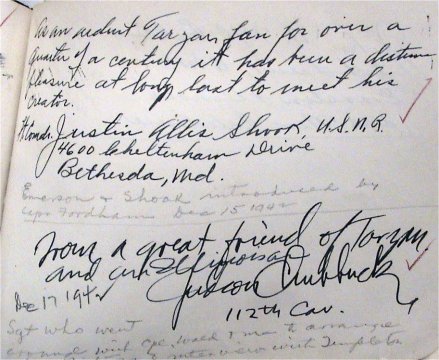 As an ardent Tarzan fan for over a
quarter of a century it has been a distinct
pleasure at long last to meet his
creator.
Lt Comdr. Justin Allis Shook, U.S.N.R.
4600 Cheltenham Drive
Bethesda, Md.
Emerson & Shook introduced by
Capt Fordham Dec 15 1942
From a great friend of Tarzan
and an Illinoisan
Judson Chubbuck
Dec 17 1942
112th Cav.
Sgt who went
around with me to arrange
interview with Templeton